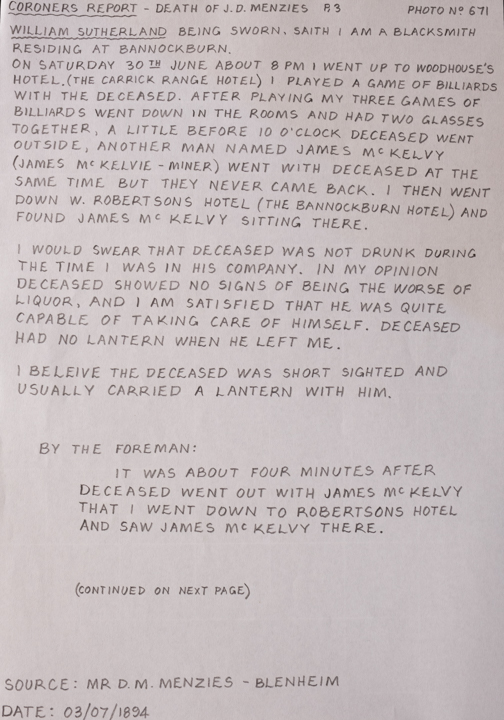 CORONERS REPORT - DEATH OF J.D. MENZIES P.3 PHOTO Nº 671
WILLIAM SUTHERLAND BEING SWORN, SAITH I AM A BLACKSMITH
RESIDING AT BANNOCKBURN.
ON SATURDAY 30TH JUNE ABOUT 8 PM I WENT UP TO WOODHOUSE'S
HOTEL. (THE CARRICK RANGE HOTEL) I PLAYED A GAME OF BILLIARDS
WITH THE DECEASED. AFTER PLAYING MY THREE GAMES OF
BILLIARDS WENT DOWN IN THE ROOMS AND HAD TWO GLASSES
TOGETHER, A LITTLE BEFORE 10 O'CLOCK DECEASED WENT
OUTSIDE, ANOTHER MAN NAMED JAMES McKELVY
(JAMES McKELVIE - MINER) WENT WITH DECEASED AT THE
SAME TIME BUT THEY NEVER CAME BACK. I THEN WENT
DOWN W. ROBERTSONS HOTEL (THE BANNOCKBURN HOTEL) AND
FOUND JAMES McKELVY SITTING THERE.
I WOULD SWEAR THAT DECEASED WAS NOT DRUNK DURING
THE TIME I WAS IN HIS COMPANY. IN MY OPINION
DECEASED SHOWED NO SIGNS OF BEING THE WORSE OF
LIQUOR, AND I AM SATISFIED THAT HE WAS QUITE
CAPABLE OF TAKING CARE OF HIMSELF. DECEASED
HAD NO LANTERN WHEN HE LEFT ME.
I BELEIVE THE DECEASED WAS SHORT SIGHTED AND
USUALLY CARRIED A LANTERN WITH HIM.
BY THE FOREMAN:
IT WAS ABOUT FOUR MINUTES AFTER
DECEASED WENT OUT WITH JAMES McKELVY
THAT I WENT DOWN TO ROBERTSONS HOTEL
AND SAW JAMES McKELVY THERE.
(CONTINUED ON NEXT PAGE)
SOURCE: MR D.M. MENZIES - BLENHEIM
DATE: 03/07/1894